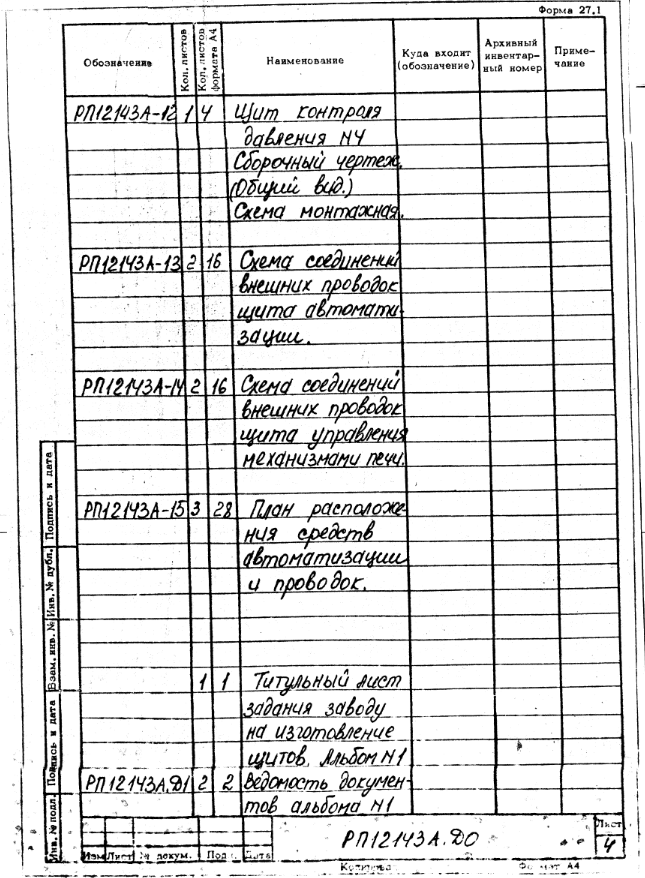 Форма 27.1
Обозначение Кол. листов Кол. листов формата А4 Наименование Куда входит (обозначение) Архивный инвентарный номер Примечание
РП12143А-12 1 4 Щит контроля
давления N4
Сборочный чертеж.
(Общий вид.)
Схема монтажная.
РП12143А-13 2 16 Схема соединений
внешних проводок
щита автомати-
зации.
РП12143А-14 2 16 Схема соединений
внешних проводок
щита управления
механизмами печи.
РП12143А-15 3 28 План расположе-
ния средств
автоматизации
и проводок.
1 1 Титульный лист
задания заводу
на изготовление
щитов. Альбом N1
РП12143А.Д1 2 2 Ведомость докумен-
тов альбома N1
Инв. № подл. Подпись и дата Взам. инв. № Инв. № дубл. Подпись и дата
РП12143А.ДО
Лист
4
Изм Лист № докум. Под Дата
Формат А4